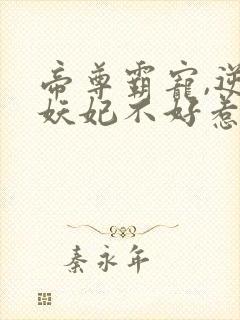 帝尊霸宠,逆
妖妃不好惹
秦永年